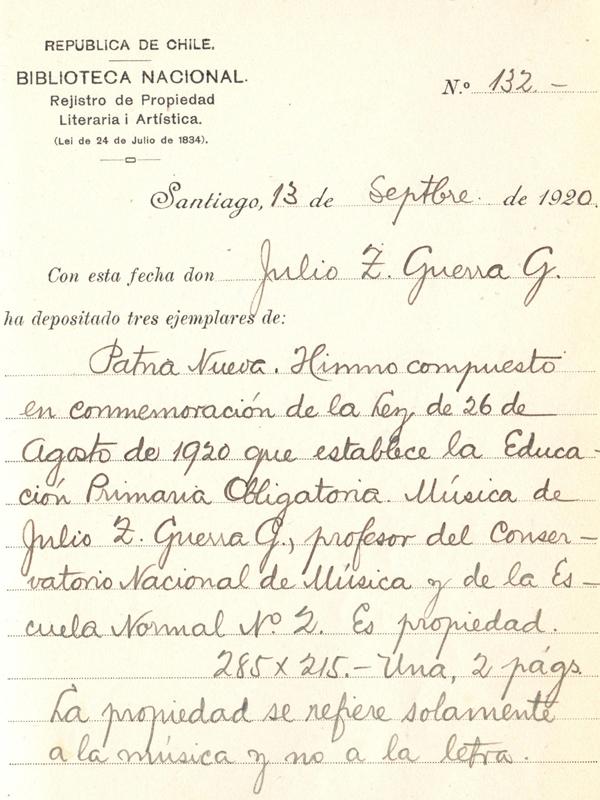 REPUBLICA DE CHILE.
BIBLIOTECA NACIONAL.
Rejistro de Propiedad
Literaria i Artística.
(Lei de 24 de Julio de 1834).
N.º 132.-
Santiago, 13 de Septbre. de 1920.
Con esta fecha don Julio Z. Guerra G.
ha depositado tres ejemplares de:
Patria Nueva. Himno compuesto
en conmemoración de la Ley de 26 de
Agosto de 1920 que establece la Educa-
ción Primaria Obligatoria. Música de
Julio Z. Guerra G., profesor del Conser-
vatorio Nacional de Música y de la Es-
cuela Normal Nº 2. Es propiedad.
285 x 215.- Una, 2 págs.
La propiedad se refiere solamente
a la música y no a la letra.